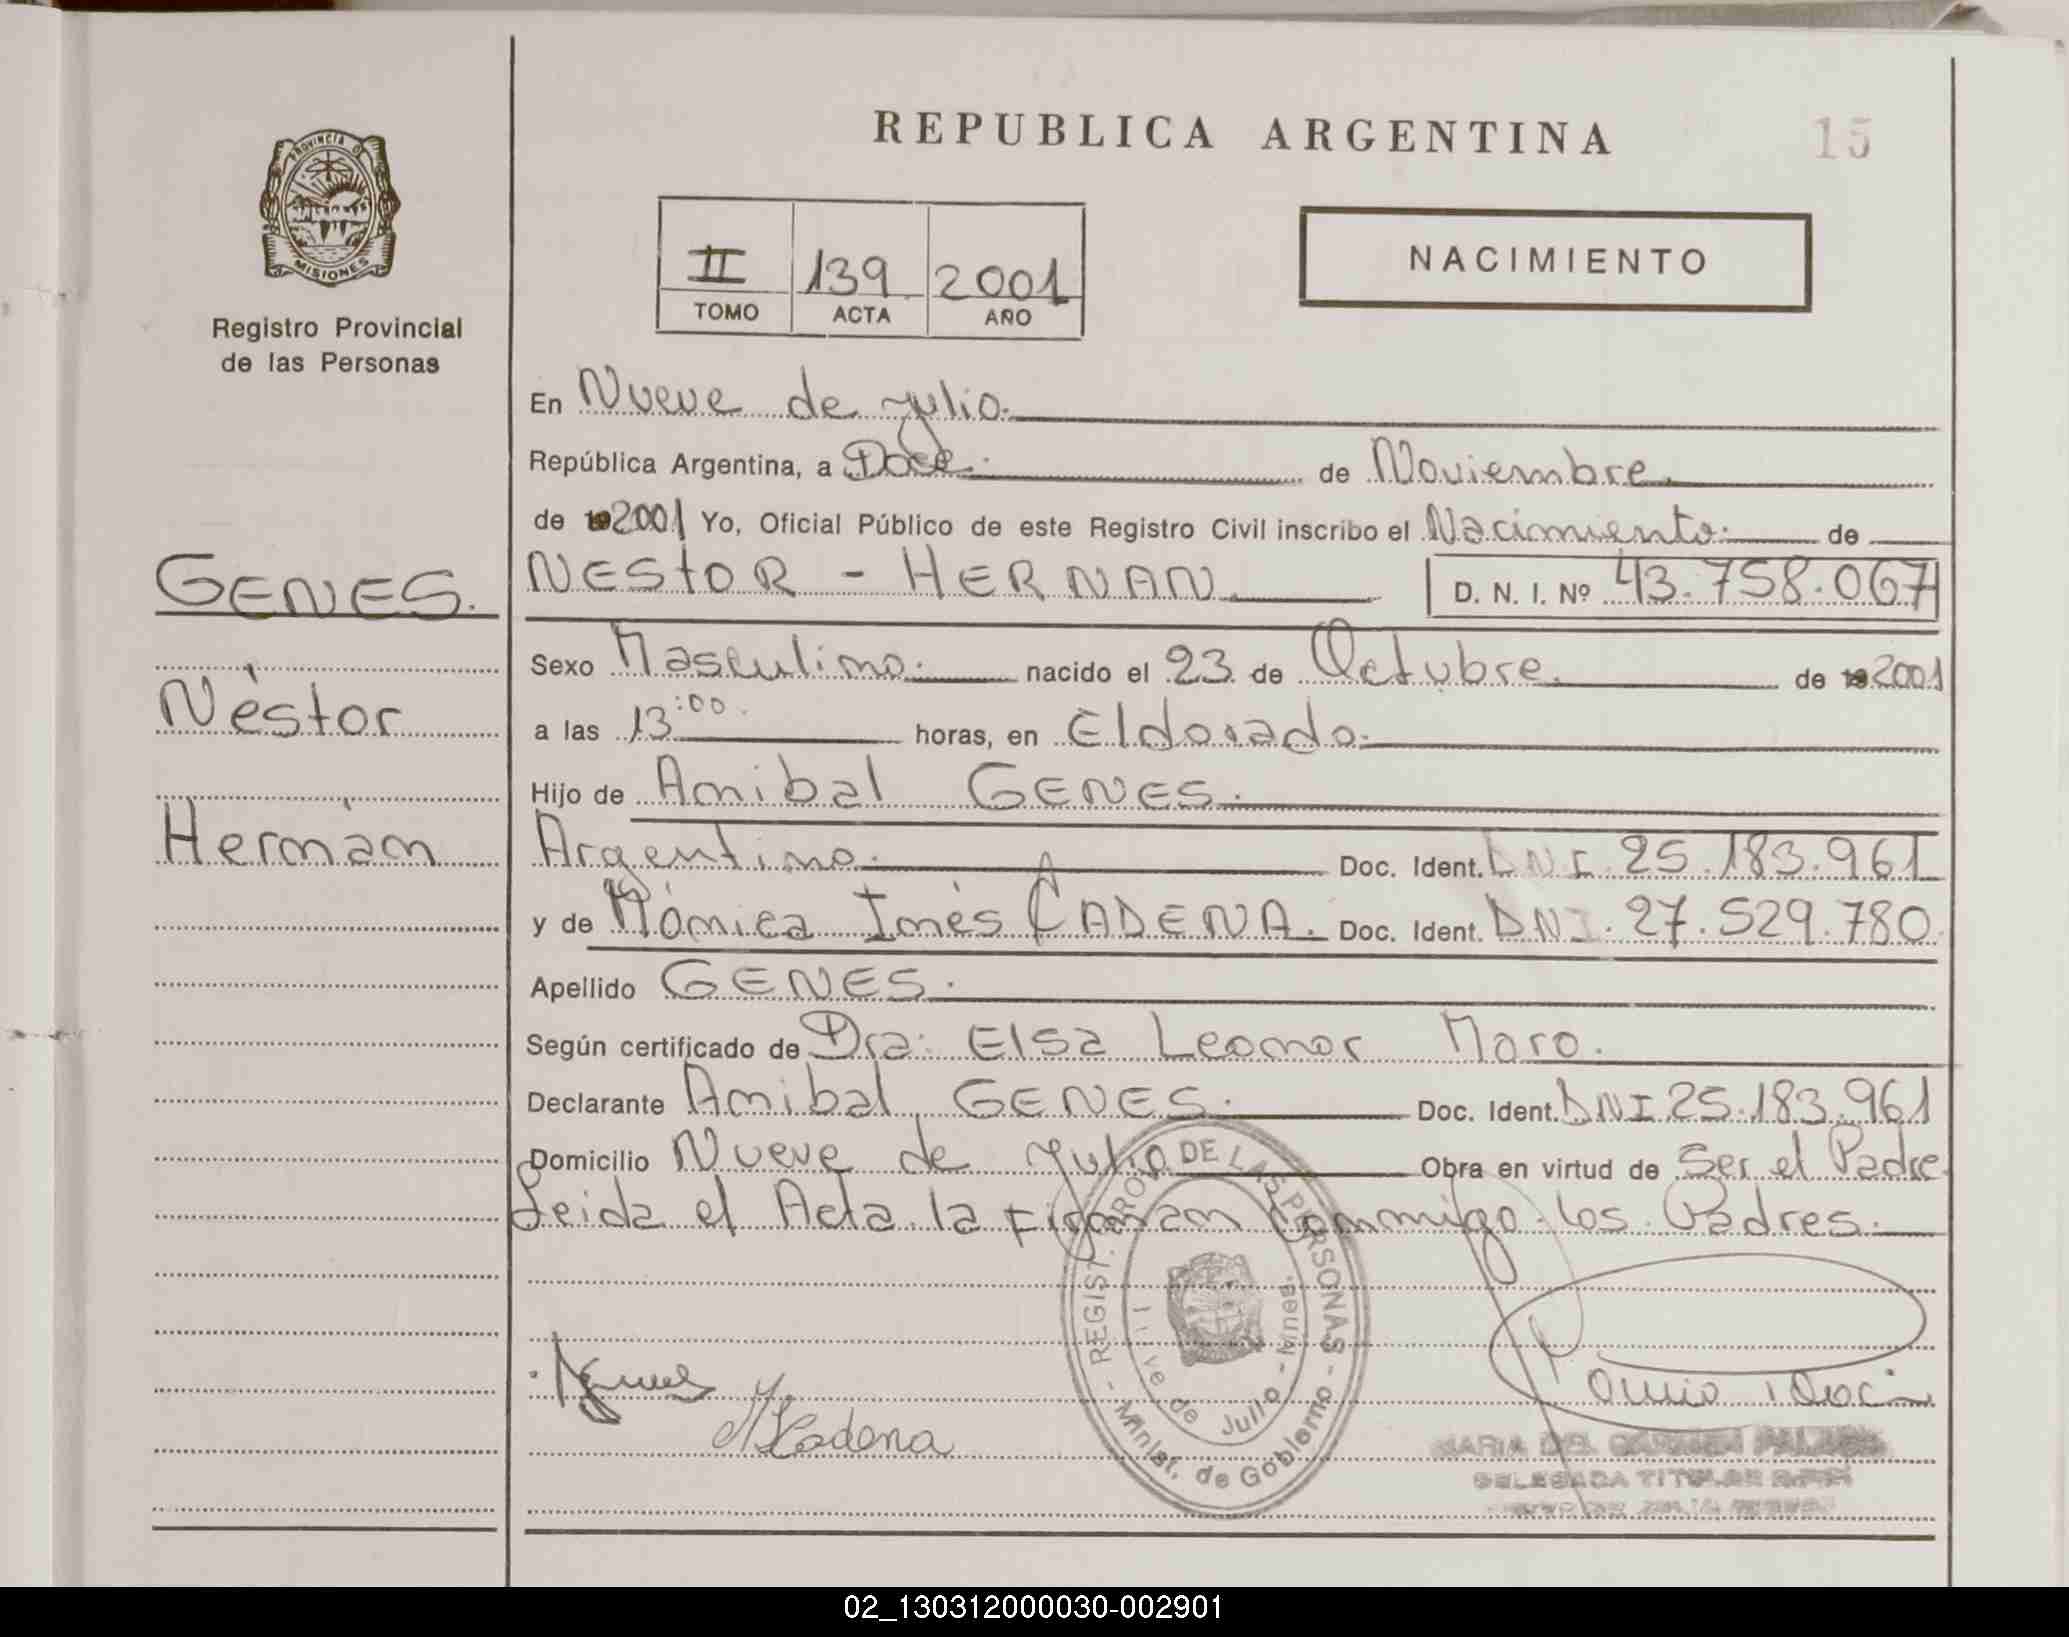 REPUBLICA ARGENTINA
15
PROVINCIA DE
MISIONES
Registro Provincial
de las Personas
II 139 2001
TOMO ACTA AÑO
NACIMIENTO
En Nueve de julio.
República Argentina, a Doce. de Noviembre.
de 192001 Yo, Oficial Público de este Registro Civil inscribo el Nacimiento. de
NEStOR - HERNAN D. N. I. Nº 43.758.067
Sexo Masculino. nacido el 23 de Octubre. de 192001
a las 13:00. horas, en Eldorado.
Hijo de Anibal GENES.
Argentino. Doc. Ident. DNI. 25.183.961
y de Mónica Inés CADENA. Doc. Ident. DNI. 27.529.780
Apellido GENES.
Según certificado de Dra: Elsa Leonor Moro.
Declarante Anibal GENES. Doc. Ident. DNI 25.183.961
Domicilio Nueve de Julio Obra en virtud de Ser el Padre
Leida el Acta la Firman conmigo los Padres.
GENES.
Néstor
Hernán
REGIST. PROV. DE LAS PERSONAS
Minist. de Gobierno
ve de Julio - Mnes.
MCadena
MARIA DEL CARMEN
DELEGADA TITULAR
02_130312000030-002901